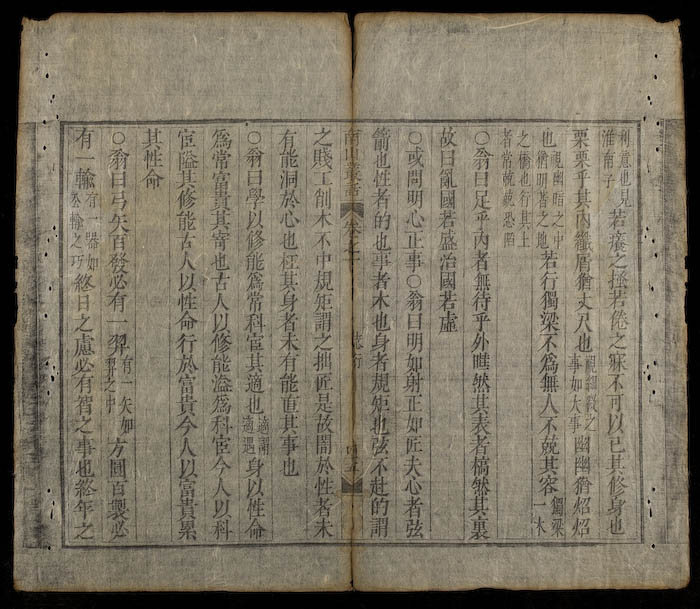 利意也見
淮南子
若癢之搔若倦之寐不可以已其修身也
栗栗乎其內纖屑猶丈尺也
事如大事
幽幽猶炤炤
也
視幽暗之中
猶明者之地
若行獨梁不為無人不兢其容
獨梁
一木
之橋也行其上
者當兢兢恐陷
○翁曰足乎內者無待乎外睟然其表者槁然其裏
故曰亂國若盛治國若虛
○或問明心正事○翁曰明如射正如匠夫心者弦
箭也性者的也事者木也身者規矩也弦不赴的謂
卷之一
德行
之賤工削木不中規矩謂之拙匠是故闇於性者未
有能洞於心也枉其身者未有能直其事也
○翁曰學以修能為常科宦其適也
適謂
適遇
身以性命
為常富貴其寄也古人以修能溢為科宦今人以科
宦隘其修能古人以性命行於富貴今人以富貴累
其性命
○翁曰弓矢百發必有一羿
有一矢如
羿之中
方圓百製必
有一輸
有一器如
公輸之巧
終日之慮必有智之事也終年之